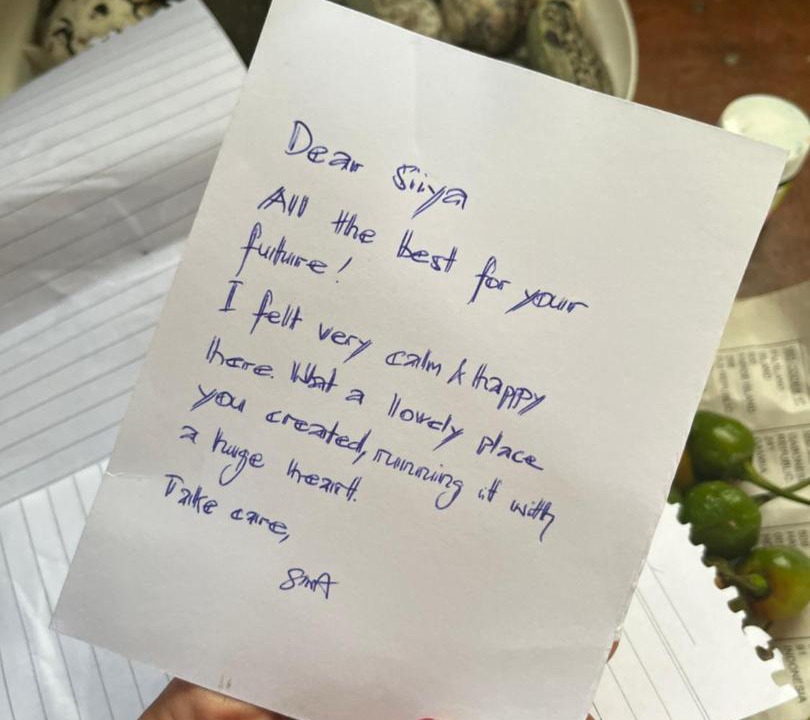 Dear Siiya
All the best for your
future!
I felt very calm & happy
there. What a lovely place
you created, running it with
a huge heart.
Take care,
INDONESIA